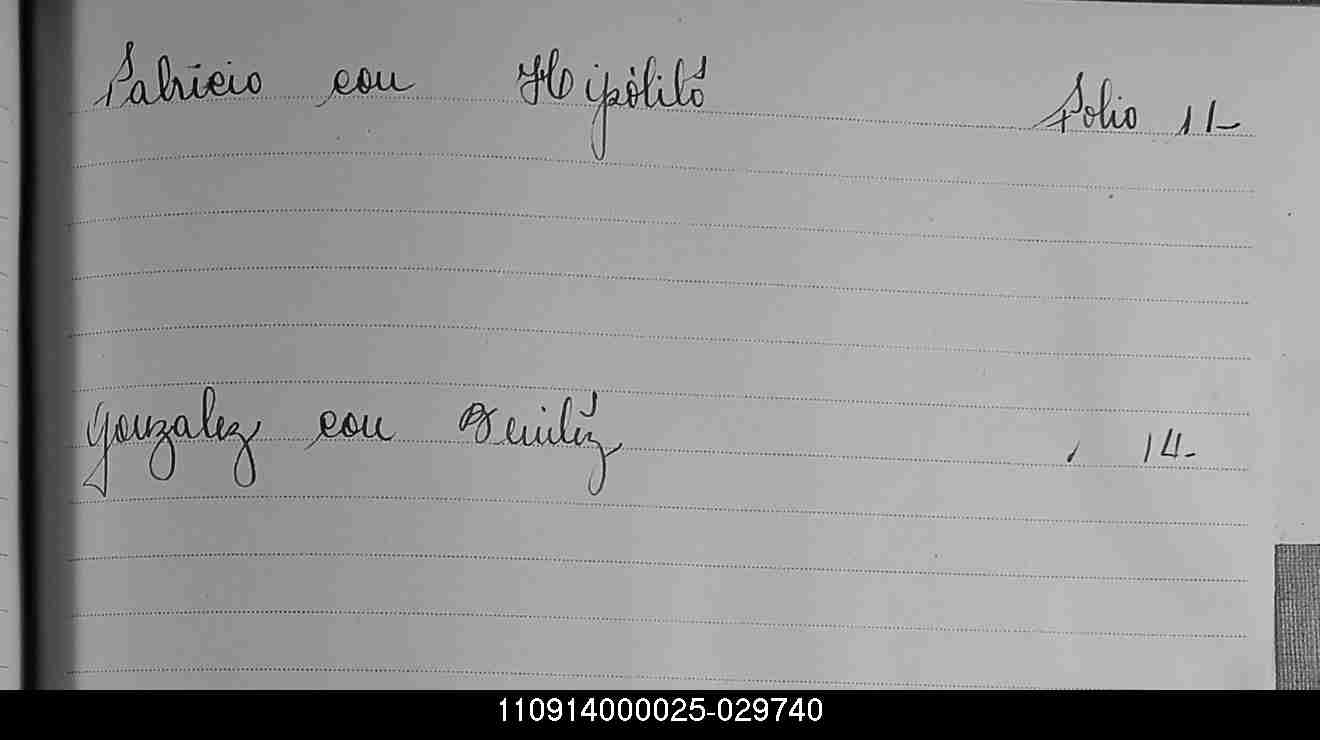 Patricio con Hipólito Folio 11-
Gonzalez con Benitez " 14-
110914000025-029740